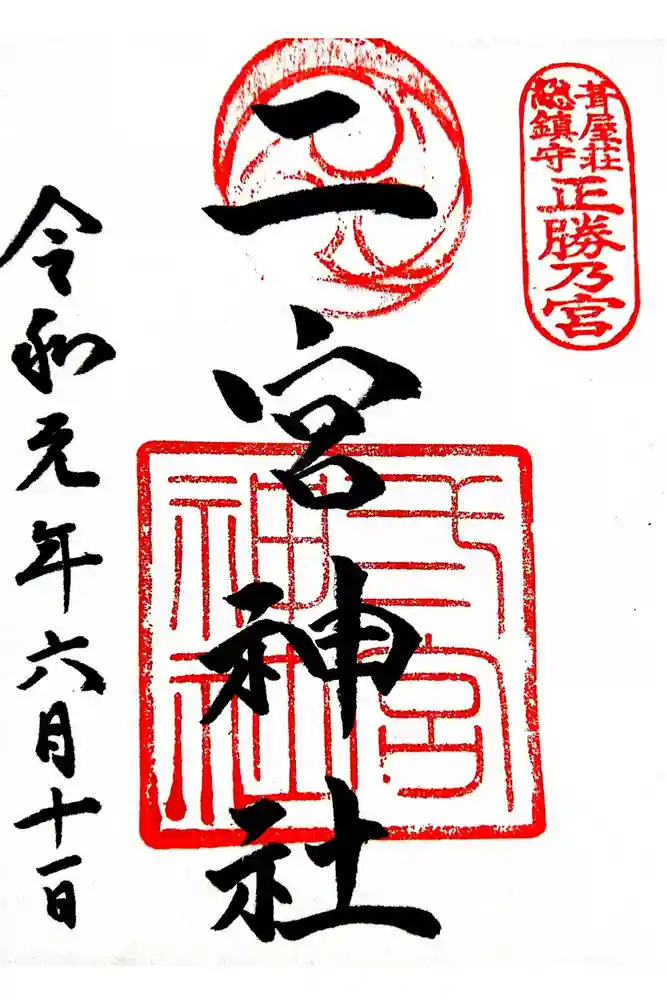 葺屋荘
總鎮守
正勝乃宮
二宮神社
弍宮
神社
令和元年六月十一日